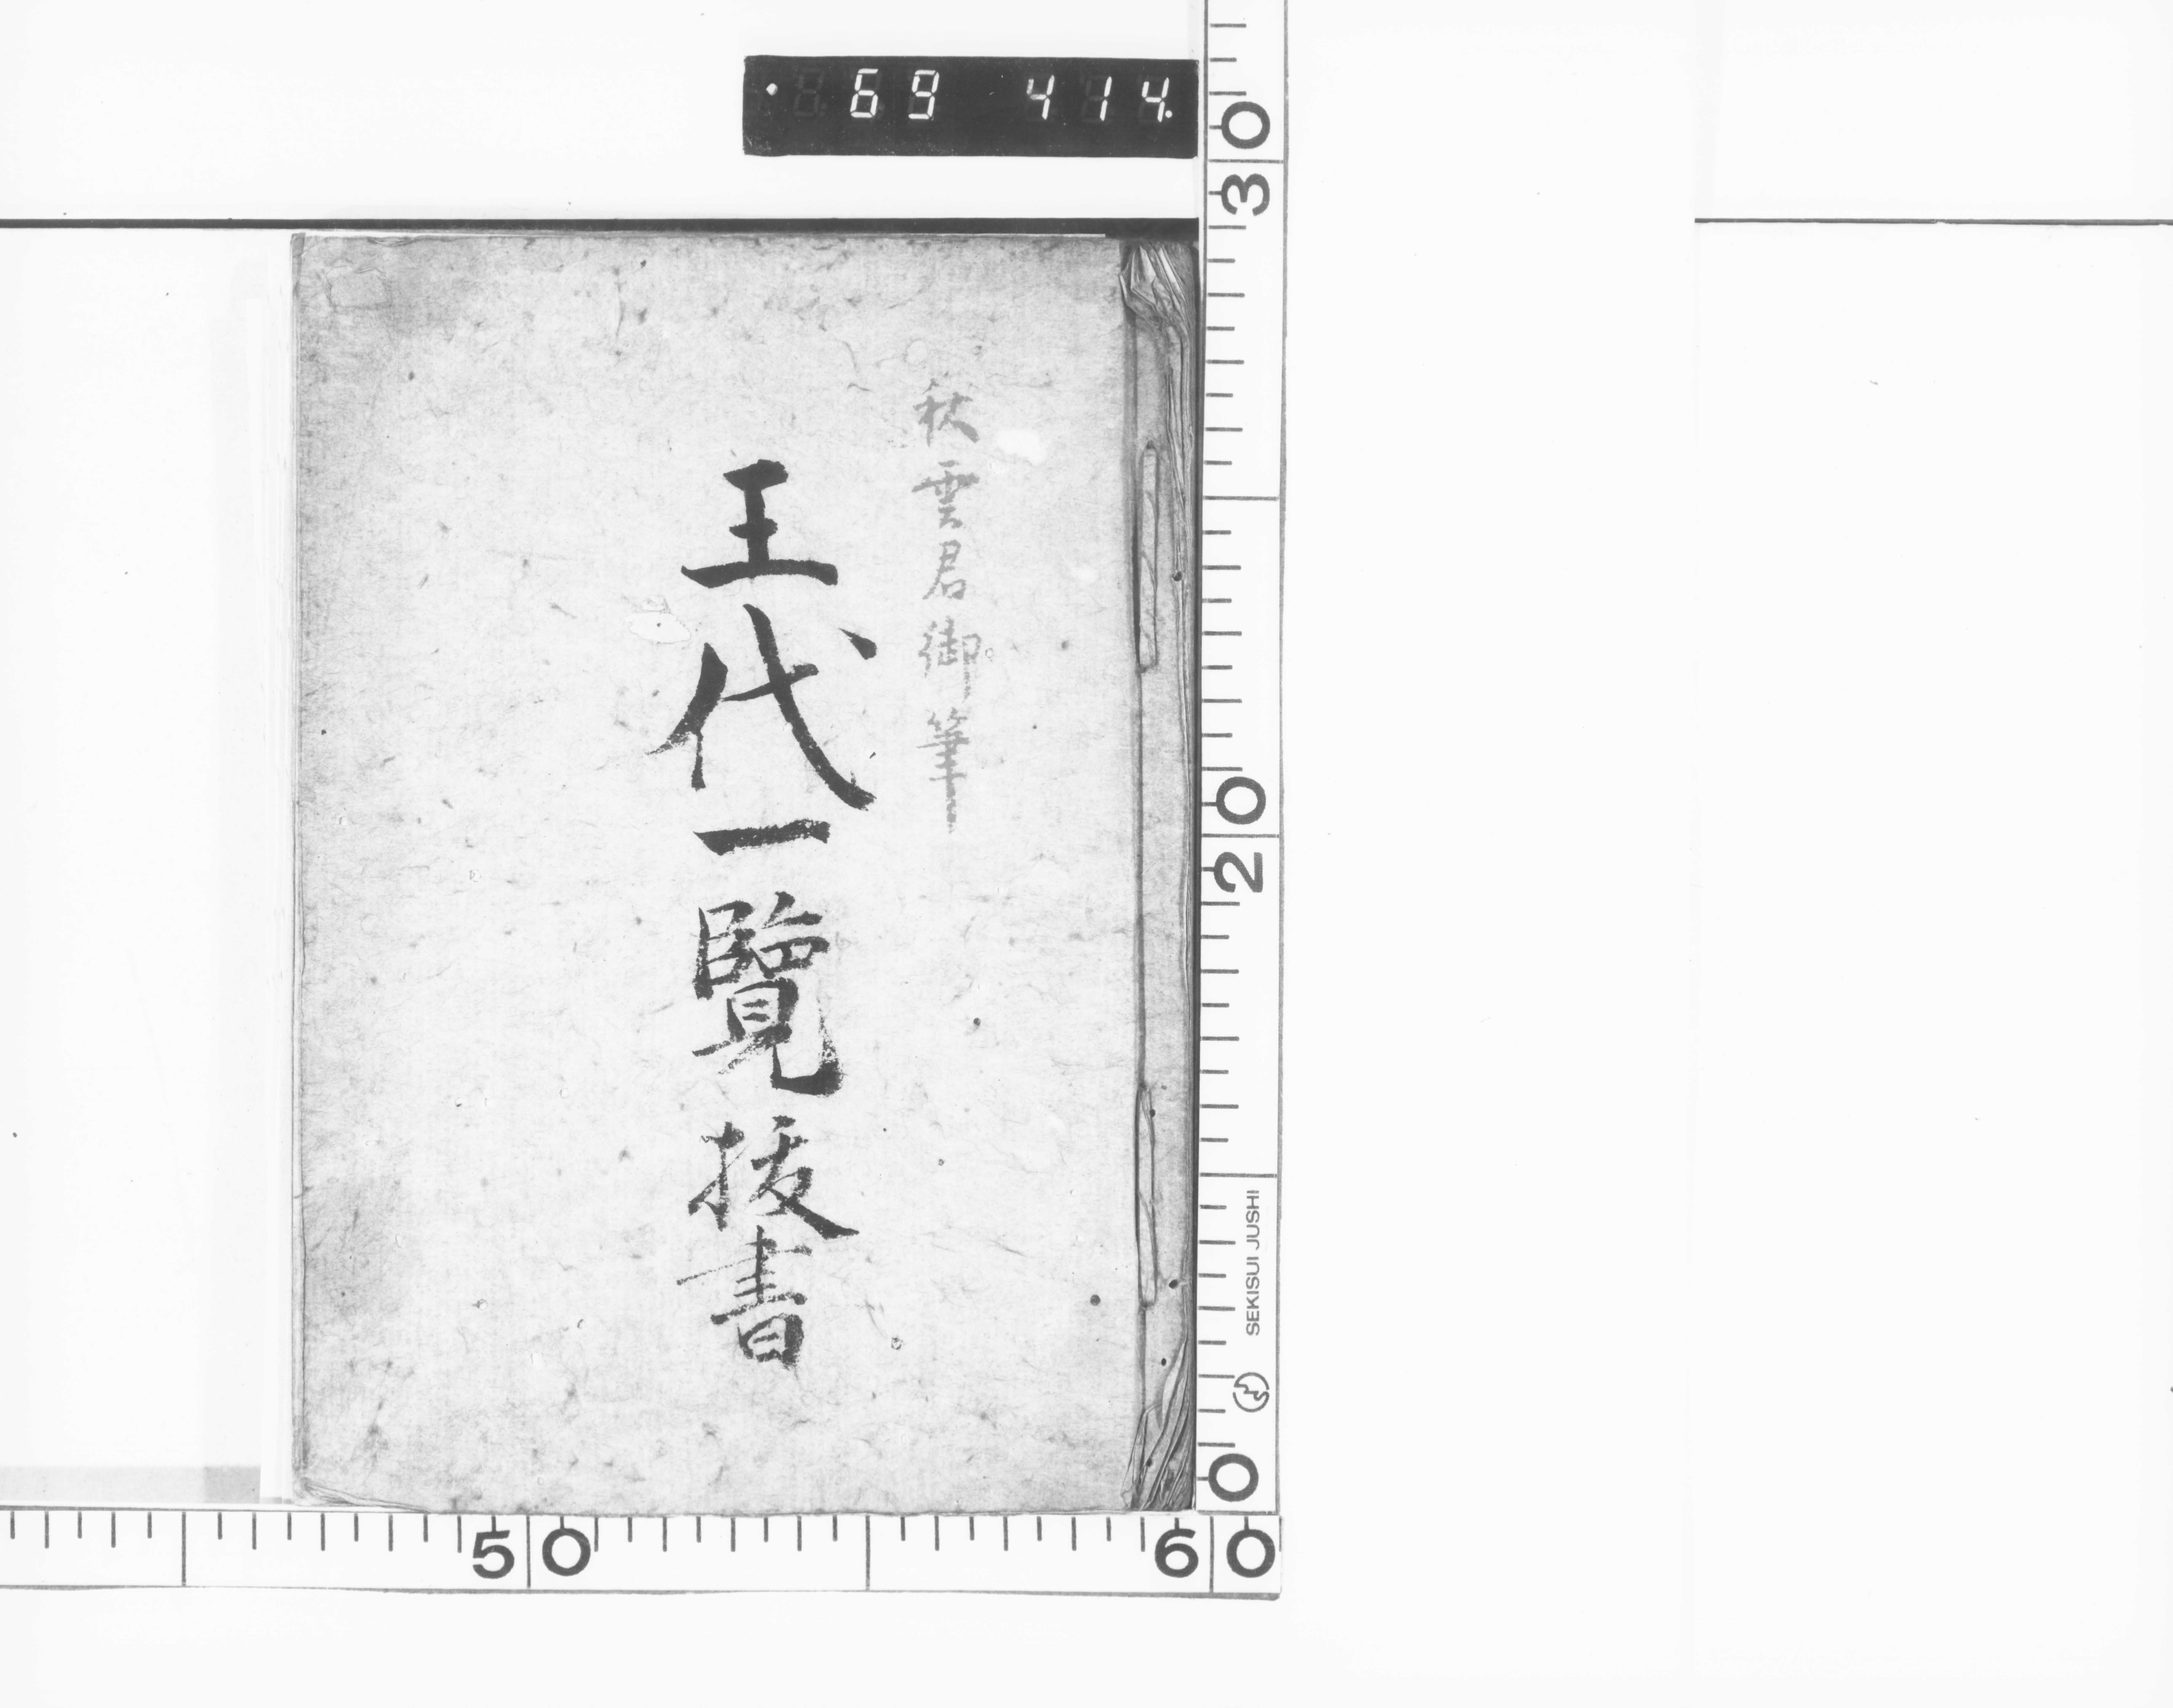 69 414
秋雲君御筆
王代一覽抜書
30
20
SEKISUI JUSHI
0
50
60